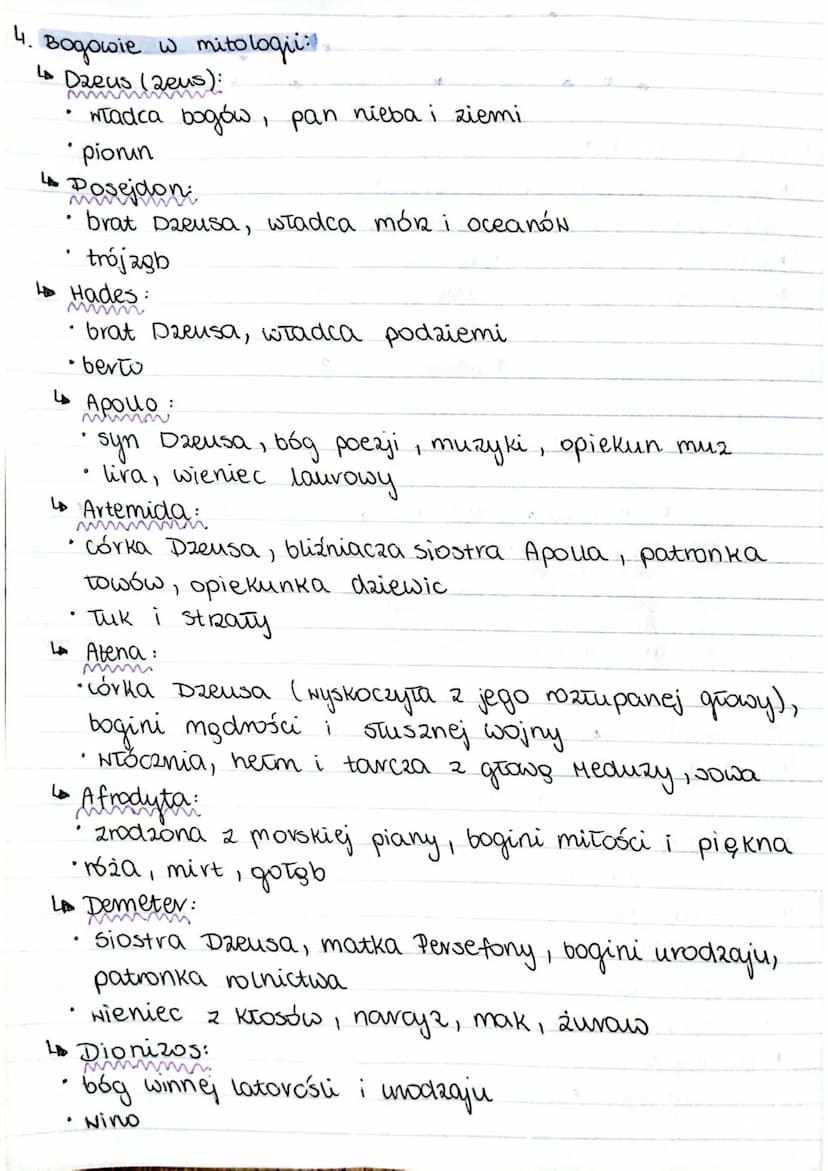 4. Bogowie w mitologii:
↳ Dzeus (Zeus):
• władca bogów, pan nieba i ziemi
• piorun
↳ Posejdon:
• brat Dzeusa, władca mórz i oceanów
• trójząb
↳ Hades:
• brat Dzeusa, władca podziemi
• berło
↳ Apollo:
• syn Dzeusa, bóg poezji, muzyki, opiekun muz
• lira, wieniec laurowy
↳ Artemida:
• córka Dzeusa, bliźniacza siostra Apolla, patronka
łowów, opiekunka dziewic
• łuk i strzały
↳ Atena:
• córka Dzeusa (wyskoczyła z jego rozłupanej głowy),
bogini mądrości i słusznej wojny
• włócznia, hełm i tarcza z głową Meduzy, sowa
↳ Afrodyta:
• zrodzona z morskiej piany, bogini miłości i piękna
• róża, mirt, gołąb
↳ Demeter:
• siostra Dzeusa, matka Persefony, bogini urodzaju,
patronka rolnictwa
• wieniec z kłosów, narcyz, mak, żuraw
↳ Dionizos:
• bóg winnej latorośli i urodzaju
• wino